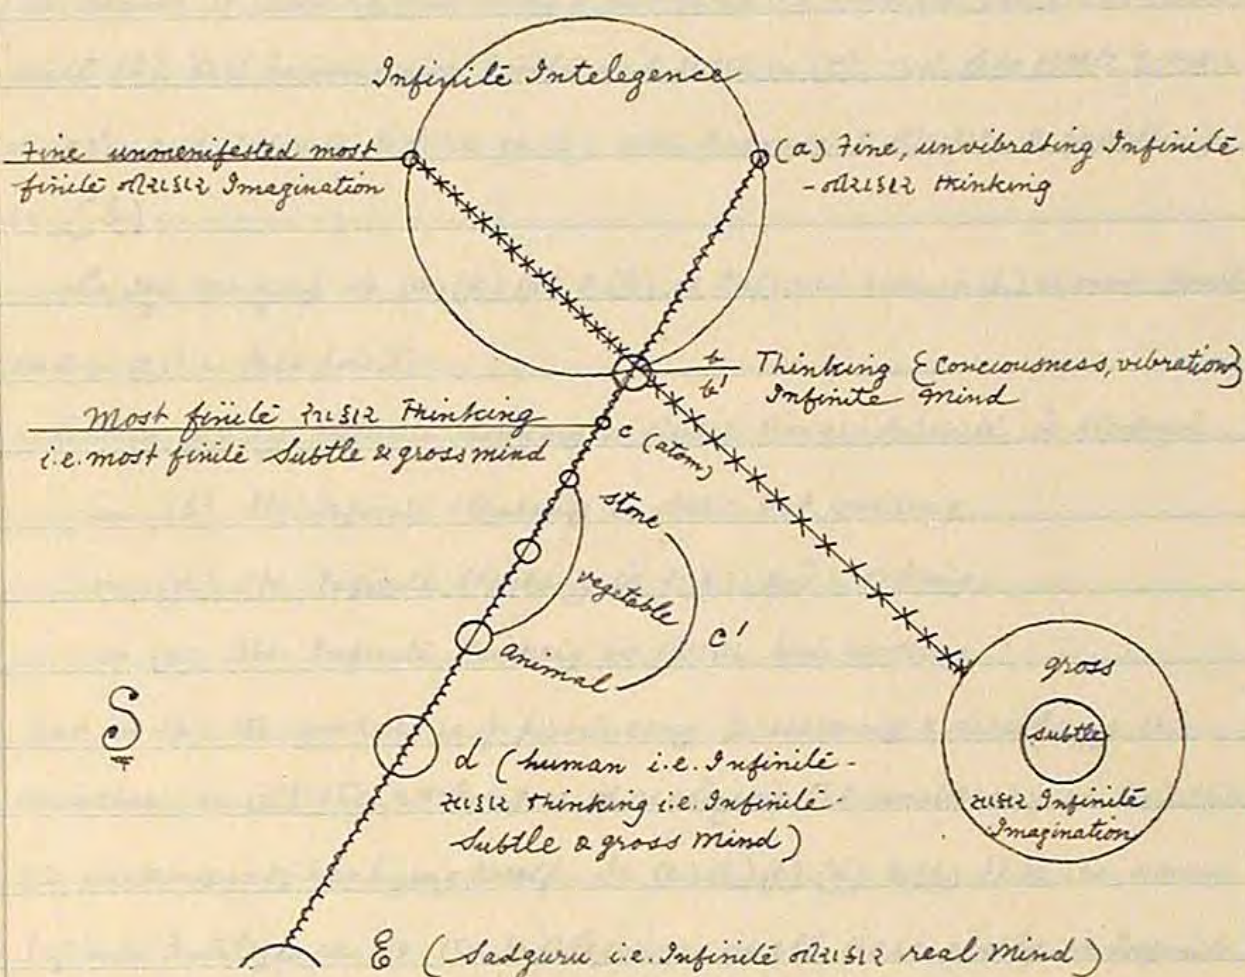 Infinite Intelegence
Fine unmenifested most
finite નીરાકાર Imagination
(a) Fine, unvibrating Infinite
- નીરાકાર thinking
b
b'
Thinking {Conciousness, vibration}
Infinite Mind
Most finite સાકાર thinking
i.e. most finite Subtle & gross mind
c (atom)
stone
vegetable
animal
c'
S
d (human i.e. Infinite -
સાકાર thinking i.e. Infinite -
Subtle & gross Mind)
gross
subtle
સાકાર Infinite
Imagination
E (Sadguru i.e. Infinite નીરાકાર real Mind)